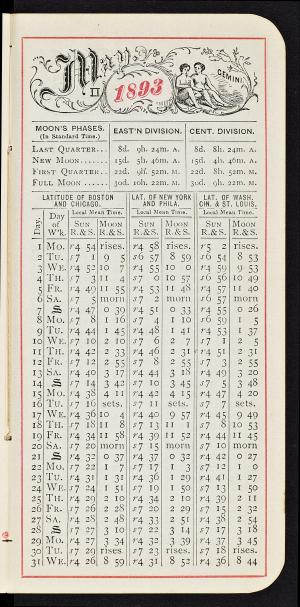 May
II
1893
GEMINI
MOON'S PHASES. EAST'N DIVISION. CENT. DIVISION.
(In Standard Time.)
LAST QUARTER... 8d. 9h. 24m. A. 8d. 8h. 24m. A.
NEW MOON...... 15d. 5h. 46m. A. 15d. 4h. 46m. A.
FIRST QUARTER.. 22d. 9h. 52m. M. 22d. 8h. 52m. M.
FULL MOON..... 30d. 10h. 22m. M. 30d. 9h. 22m. M.
LATITUDE OF BOSTON AND CHICAGO. LAT. OF NEW YORK AND PHILA. LAT. OF WASH. CIN. & ST. LOUIS.
Local Mean Time. Local Mean Time. Local Mean Time.
Day. Day of W'k. SUN R.&S. MOON R.&S. SUN R.&S. MOON R.&S. SUN R.&S. MOON R.&S.
1 MO. r4 54 rises. r4 58 rises. r5 2 rises.
2 TU. s7 1 9 5 s6 57 8 59 s6 54 8 53
3 WE. r4 52 10 7 r4 55 10 0 r4 59 9 53
4 TH. s7 3 11 4 s7 0 10 57 s6 56 10 49
5 FR. r4 49 11 55 r4 53 11 48 r4 57 11 40
6 SA. s7 5 morn s7 2 morn s6 57 morn
7 S r4 47 0 39 r4 51 0 33 r4 55 0 26
8 MO. s7 8 1 16 s7 4 1 10 s6 59 1 5
9 TU. r4 44 1 45 r4 48 1 41 r4 53 1 37
10 WE. s7 10 2 10 s7 6 2 7 s7 1 2 5
11 TH. r4 42 2 33 r4 46 2 31 r4 51 2 31
12 FR. s7 12 2 55 s7 8 2 55 s7 3 2 55
13 SA. r4 40 3 17 r4 44 3 18 r4 49 3 20
14 S s7 14 3 42 s7 10 3 45 s7 5 3 48
15 MO. r4 38 4 11 r4 42 4 15 r4 47 4 20
16 TU. s7 16 sets. s7 11 sets. s7 7 sets.
17 WE. r4 36 10 4 r4 40 9 57 r4 45 9 49
18 TH. s7 18 11 8 s7 13 11 1 s7 8 10 53
19 FR. r4 34 11 58 r4 39 11 52 r4 44 11 45
20 SA. s7 20 morn s7 15 morn s7 10 morn
21 S r4 32 0 37 r4 37 0 32 r4 42 0 27
22 MO. s7 22 1 7 s7 17 1 3 s7 12 1 0
23 TU. r4 31 1 31 r4 36 1 29 r4 41 1 27
24 WE. s7 24 1 51 s7 19 1 50 s7 13 1 50
25 TH. r4 29 2 10 r4 34 2 10 r4 39 2 11
26 FR. s7 26 2 28 s7 20 2 29 s7 15 2 32
27 SA. r4 28 2 48 r4 33 2 51 r4 38 2 54
28 S s7 27 3 10 s7 22 3 14 s7 17 3 18
29 MO. r4 27 3 34 r4 32 3 39 r4 37 3 45
30 TU. s7 29 rises s7 23 rises. s7 18 rises.
31 WE. r4 26 8 59 r4 31 8 52 r4 36 8 44